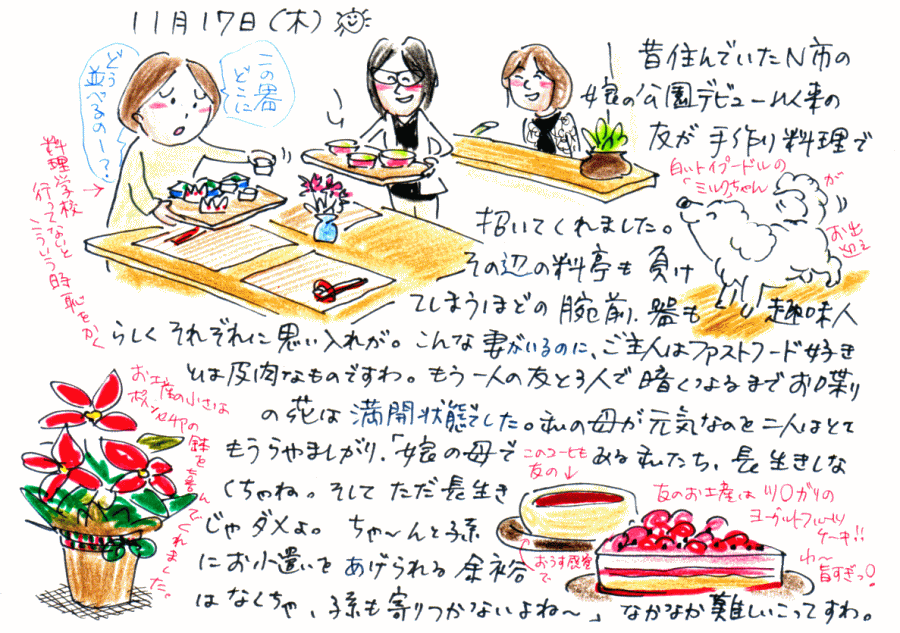 11月17日(木)
この器
どこに
どう
並べるのー?
料理学校
行ってないと
こういう時
恥をかく
昔住んでいたN市の
娘の公園デビュー以来の
友が手作り料理で
白いトイプードルの
「ミルク」ちゃん
が
お出
迎え
招いてくれました。
その辺の料亭も負け
てしまうほどの腕前、器も趣味人
らしくそれぞれに思い入れが。こんな妻がいるのに、ご主人はファストフード好き
とは皮肉なものですわ。もう一人の友と3人で暗くなるまでお喋り
の花は満開状態でした。私の母が元気なのを二人はとて
もうらやましがり、「娘の母で
ある私たち、長生きしな
くちゃね。そしてただ長生き
じゃダメよ。ちゃ〜んと孫
にお小遣いをあげられる余裕
はなくちゃ、孫も寄りつかないよね〜」なかなか難しいこってすわ。
お土産の小さな
ポインセチアの
鉢を喜んでくれました。
このコーヒーも
友の
おうす感覚
で
友のお土産はツ○ガリの
ヨーグルトフルーツ
ケーキ!!
わ〜
旨すぎっ○